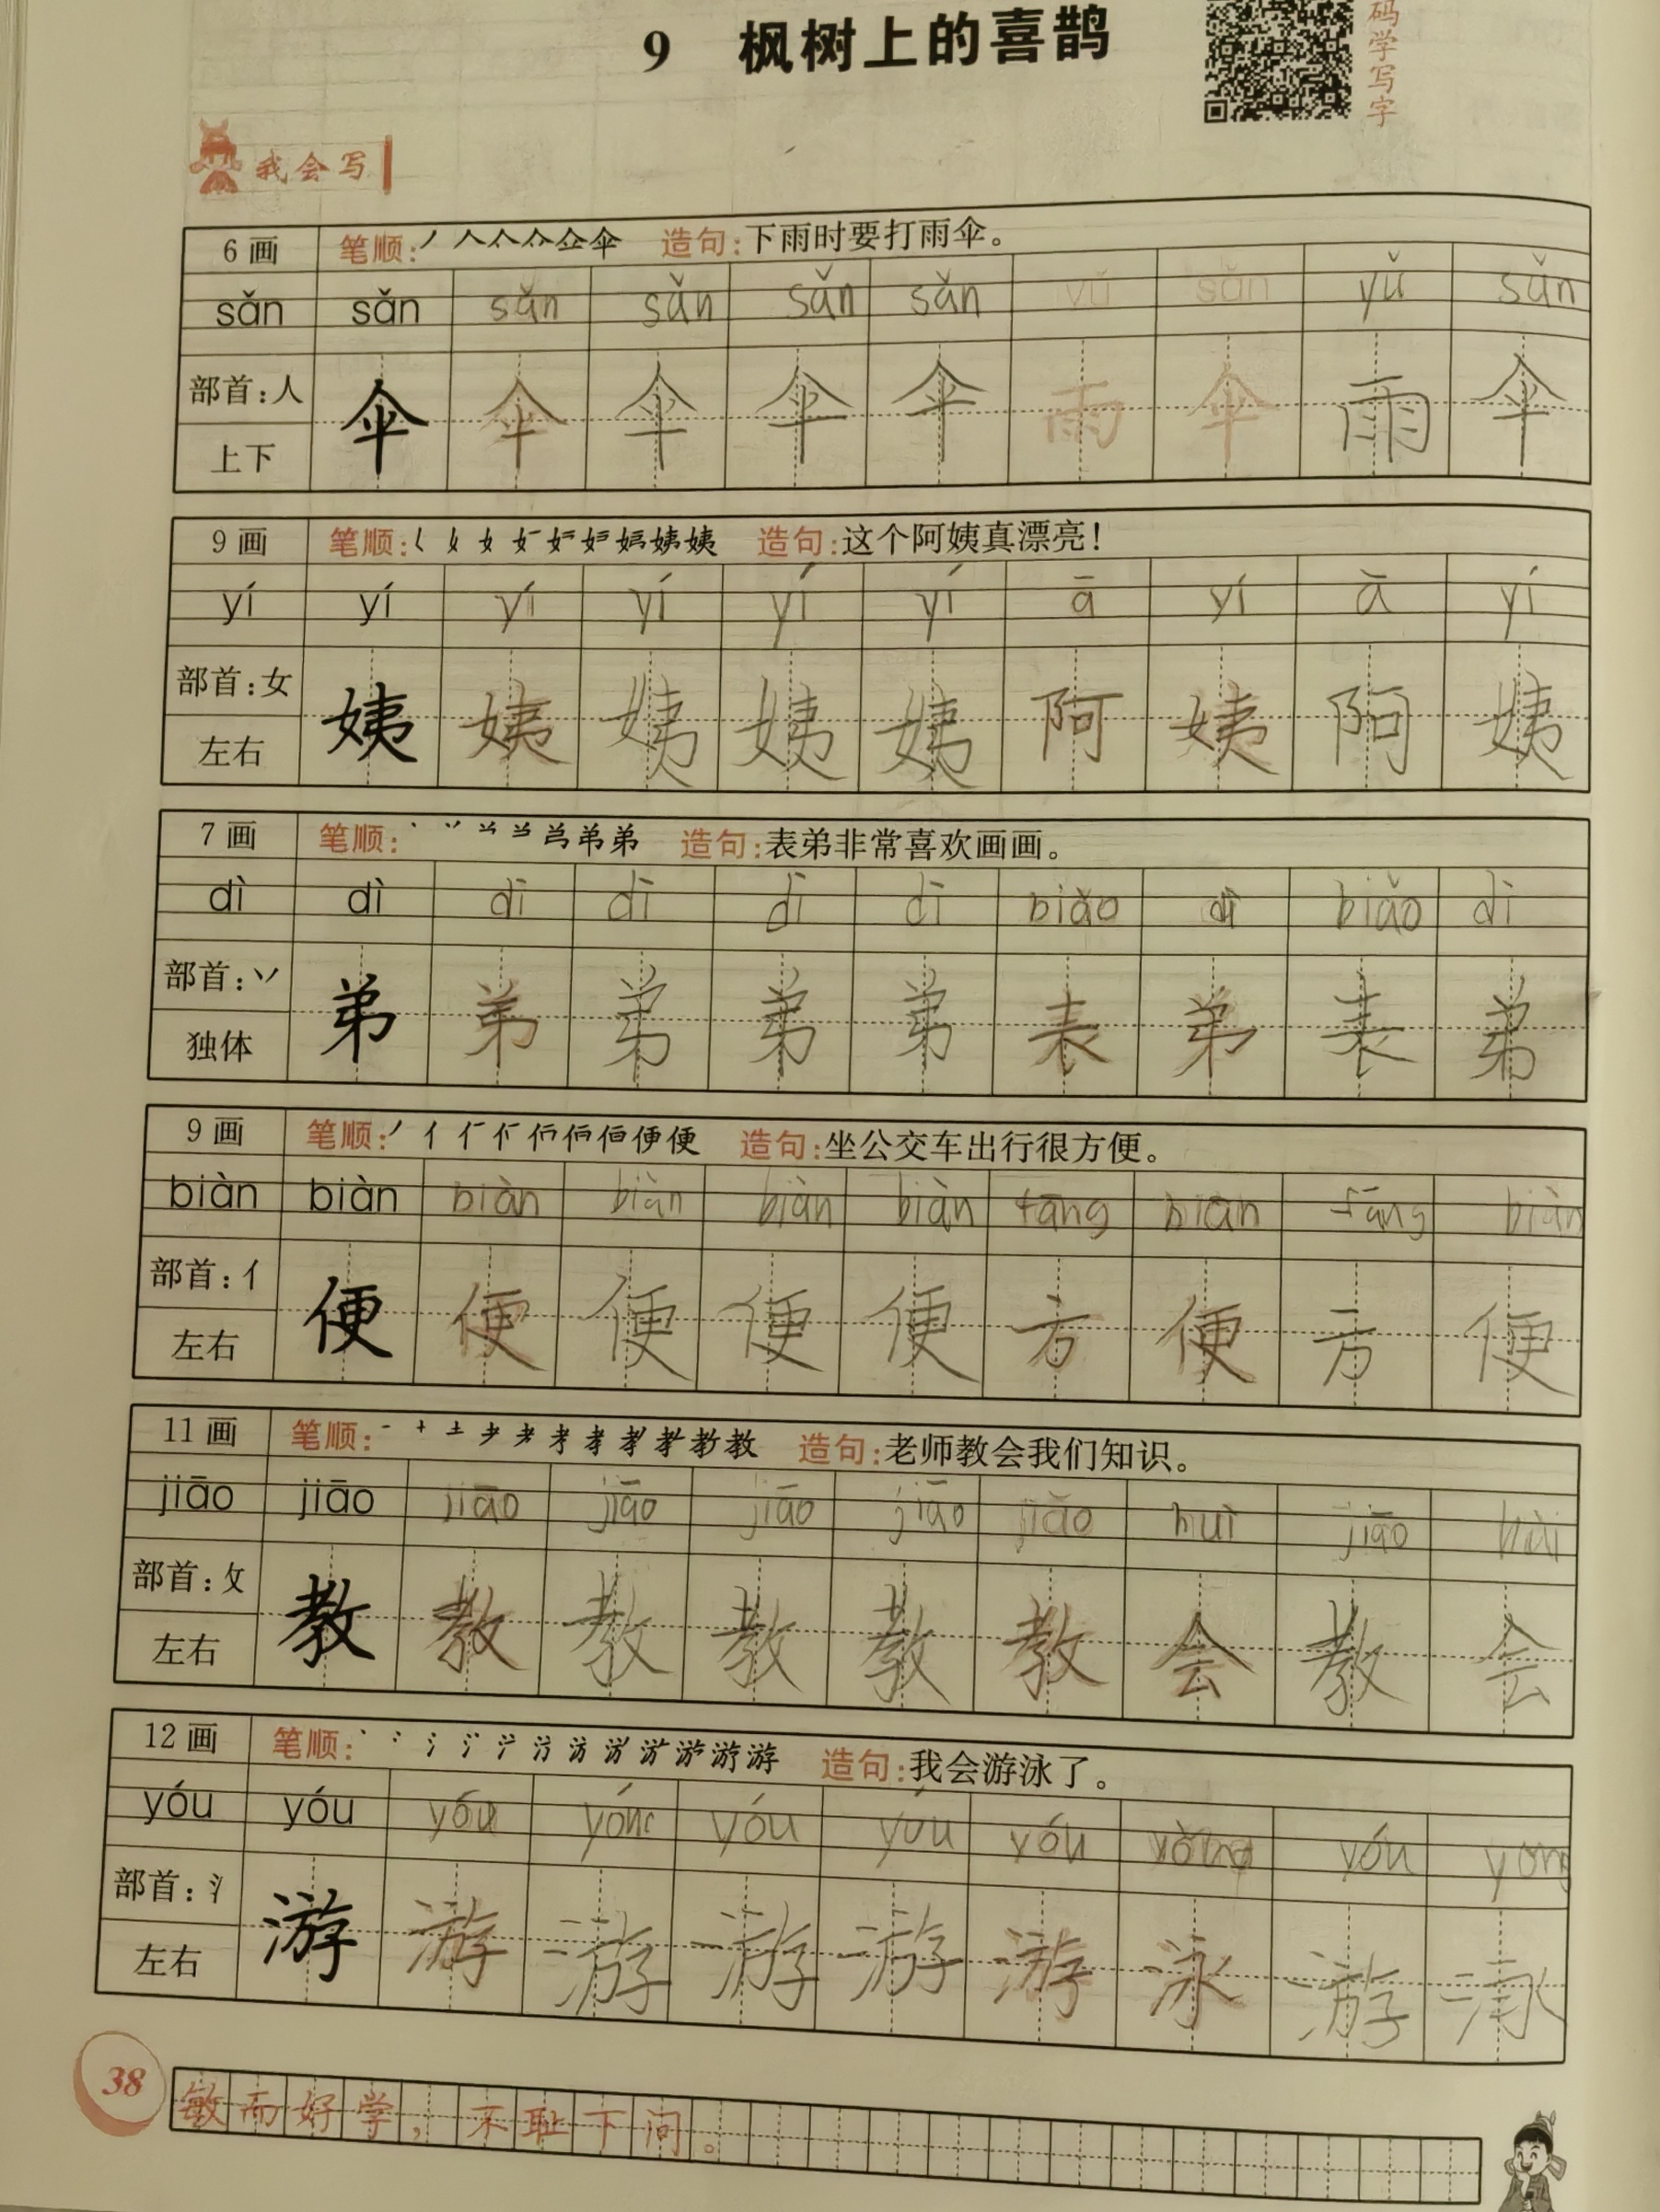 9 枫树上的喜鹊
码学写字
我会写
6画 笔顺: 造句:下雨时要打雨伞。
sǎn sǎn sǎn sǎn sǎn sǎn yǔ sǎn yǔ sǎn
部首:人 伞 伞 伞 伞 伞 雨 伞 雨 伞
上下
9画 笔顺: 造句:这个阿姨真漂亮!
yí yí yí yí yí yí ā yí ā yí
部首:女 姨 姨 姨 姨 姨 阿 姨 阿 姨
左右
7画 笔顺: 造句:表弟非常喜欢画画。
dì dì dì dì dì dì biǎo dì biǎo dì
部首:丷 弟 弟 弟 弟 弟 表 弟 表 弟
独体
9画 笔顺: 造句:坐公交车出行很方便。
biàn biàn biàn biàn biàn biàn fāng biàn fāng biàn
部首:亻 便 便 便 便 便 方 便 方 便
左右
11画 笔顺: 造句:老师教会我们知识。
jiāo jiāo jiāo jiāo jiāo jiāo jiāo huì jiāo
部首:攵 教 教 教 教 教 教 会 教 会
左右
12画 笔顺: 造句:我会游泳了。
yóu yóu yóu yóu yóu yóu yǒng yóu yong
部首:氵 游 游 游 游 游 游 泳 游 泳
左右
38
敏而好学,不耻下问。